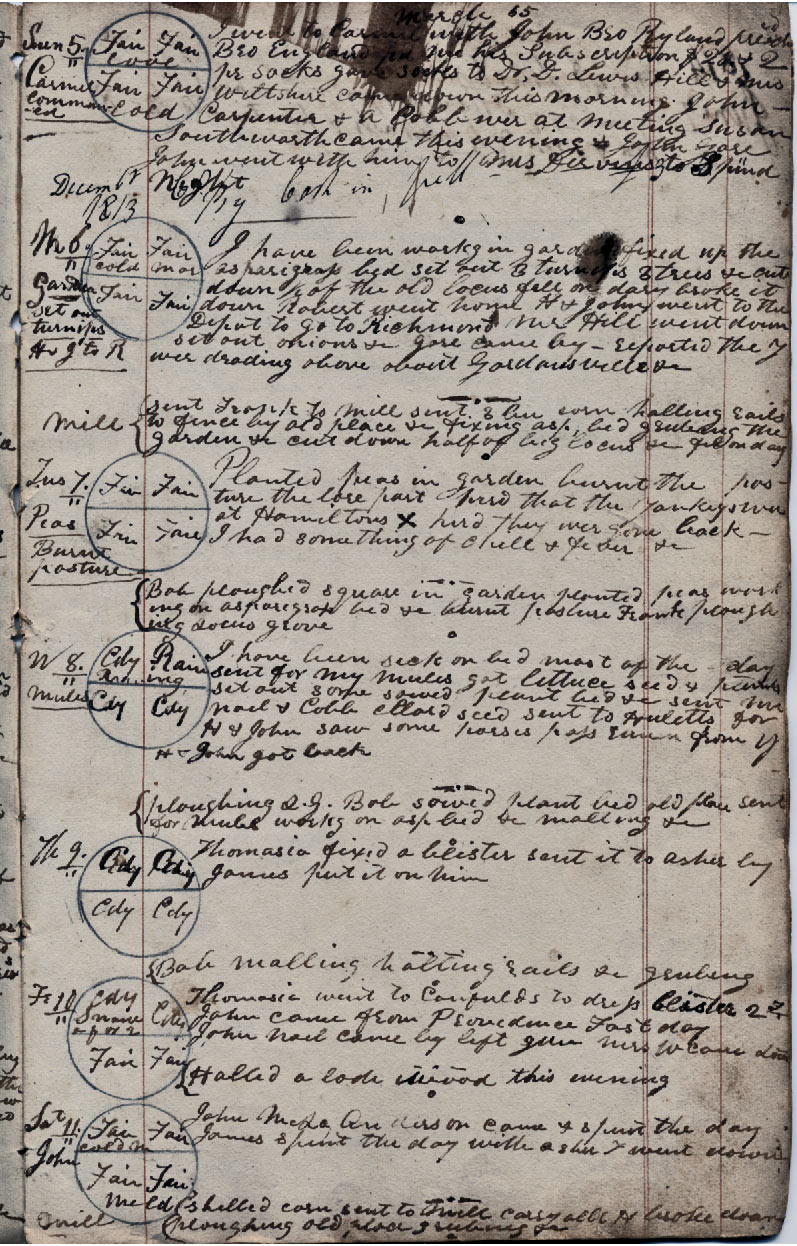 March 65
Sun 5. Fair Fair I went to Carmel with John Bro Ryland preach
cool Bro England pd me his Subscription $20 & 2
Carmel Fair Fair pr socks gave socks to Dr. D. Lewis Hill & Mrs
commenc Wiltshire came down this morning. John
ed Cold Carpenter & a Cobb wer at meeting Susan
Southworth came this evening &
John went with him to Mrs to Spind
Night
Decem 1st
1813 By Cash in, full
M 6. Fair Fair I have been workg in garden fixed up the
" cold asparigras bed set out 3 turnips 3 trees & cut
Garden Fair Fair down ½ of the old locus fell on dary broke it
set out down Robert went home H & Johny went to the
turnips Depot to go to Richmond Mr Hill went down
H & J to R set out onions & Gore came by - reported the Y
wer drading above about Gordansville &
Mill sent Frank to Mill sent 8 bu corn halling rails
to fence by old place & fixing asp. bed grubing the
garden & cut down half of big locus & fel on day
Tus 7. Fair Fair Planted peas in garden burnt the pos-
" ture the lose part hird that the Yankeys wer
Peas Fair Fair at Hamiltons X hird they wer gone back -
Burnt I had something of chill & fever &
posture
Bob ploughed square in garden planted peas work
ing on asparigras bed & burnt posture Frank plough
ing Locus grove
W 8. Cdy Raining I have been sick on bed most of the day
" sent for my mules got lettuce seed & plants
mules Cdy Cdy set out some sowed plant bed & sent Mr
nail & Cobb ellard seed sent to Huletts for
H & John saw some passis pass Ewen from Y
H & John got back
ploughing L. G. Bob sowed plant bed old place sent
for mules workg on asp bed & malling &
Th 9. Cdy Cdy Thomasia fixed a blister sent it to asher by
" James put it on him
Cdy Cdy
Bob malling halting rails & grubing
Fr 10 Cdy Cdy Thomasia went to Canfulds to dress blister
" John came from Providence Fast day
John nail came by left gun Mrs W came down
Fair Fair
Halled a lode wood this evening
Sat 11. Fair Fair John Anderson came & spint the day
" cold m James spint the day with asher & went down
John Fair Fair
Meld shelled corn sent to mill carryall & broke down
Mill ploughing old place grubing &